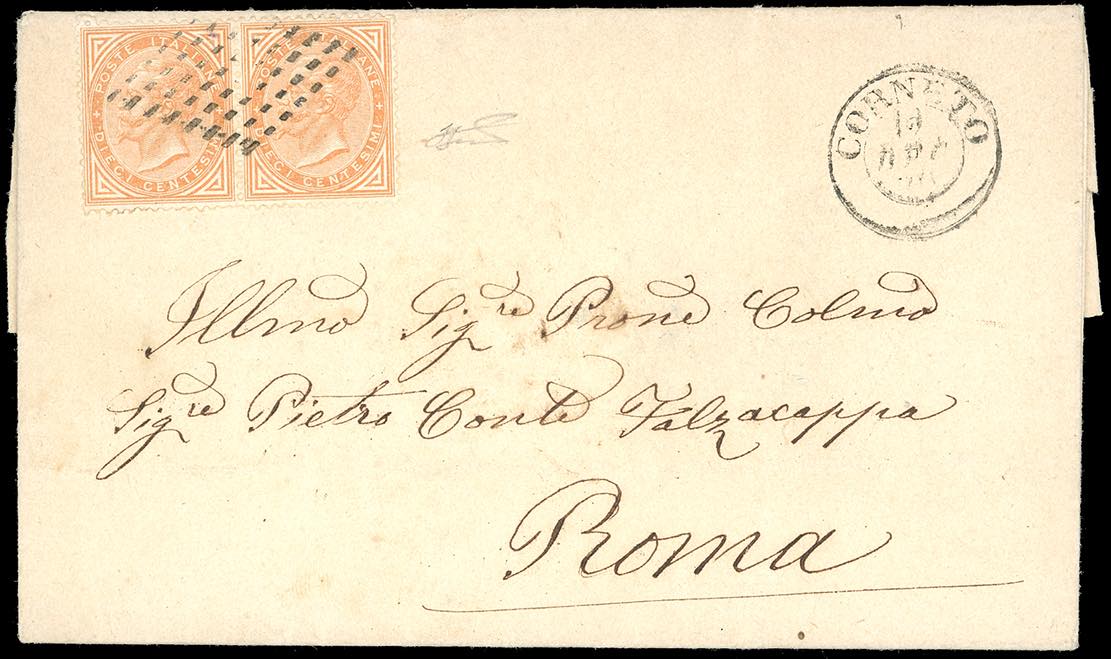 POSTE ITALIANE
DIECI CENTESIMI
POSTE ITALIANE
DIECI CENTESIMI
CORNETO
Illmo Sigre Prone Colmo
Sigre Pietro Conte Falzacappa
Roma